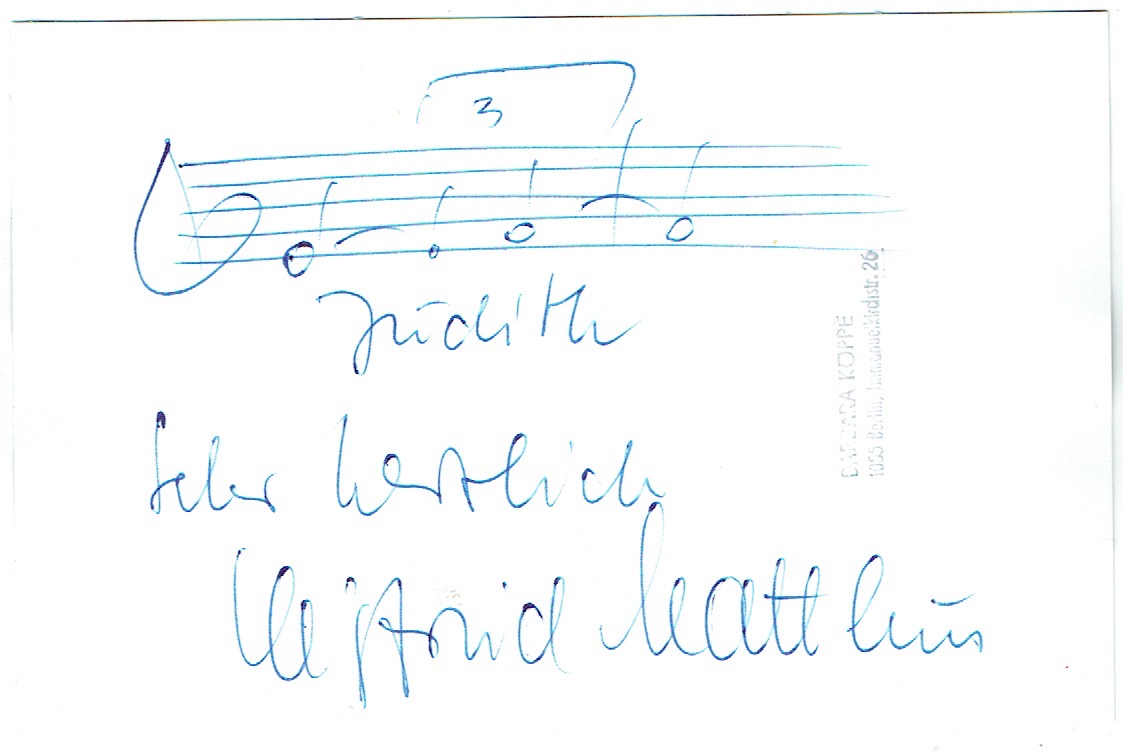 3
Judith
Sehr herzlich
Siegfried Matthus
BARBARA KOPPE
1055 Berlin, Immanuelkirchstr. 26